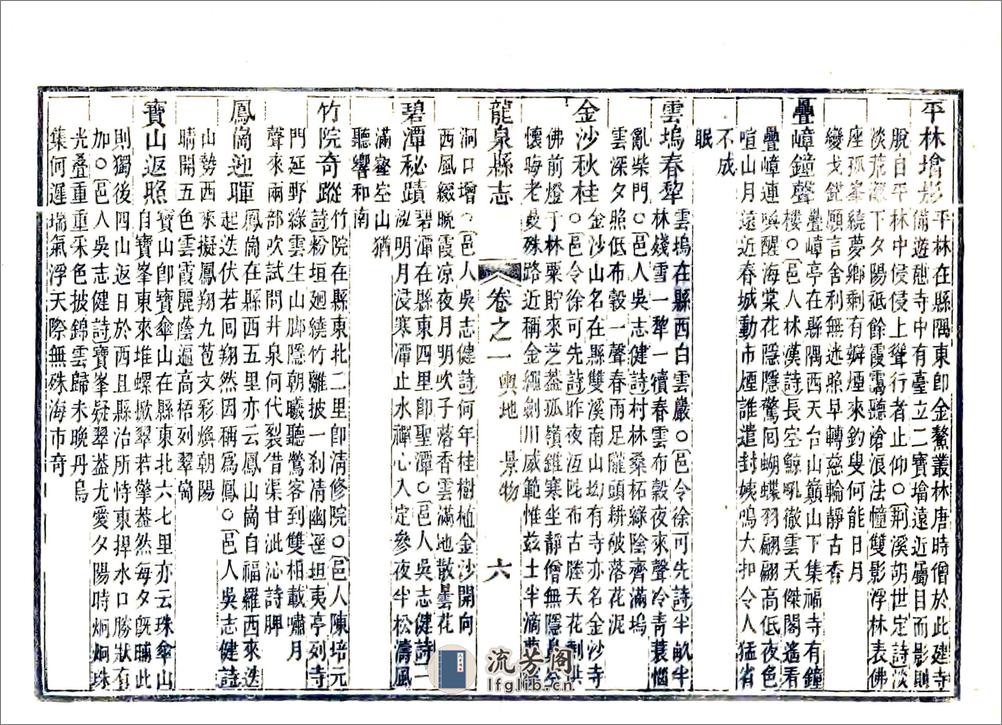 平林墖影平林在縣隅東卽金鰲叢林唐時僧於此建寺
備遊憩寺中有臺立二寶墖遠近屬目而影
脫自平林中侵侵上聳行者止仰○荆溪胡世定詩淡
淡荒 下夕陽砥餘霞靄聽滄浪法幢雙影浮林表佛
座孤峯繞夢鄉剩有孏煙來釣叟何能日月
變戈鋋願言舍利無迷路早轉慈輪靜古香
疊嶂鐘聲疊嶂亭在縣隅西天台山巔山下集福寺有鐘
樓○邑人林漢詩長空鯨吼徹雲天傑閣遙看
疊嶂連喚醒海棠花隱隱驚回蝴蝶羽翩翩高低夜色
喧山月遠近春城動市煙誰遣封姨鳴大扣令人猛省
不成
眠
雲塢春犂雲塢在縣西白雲巖○邑令徐可先詩半畝半
林殘雪一犂一犢春雲布穀夜夜來聲冷靑蓑惱
亂柴門○邑人吳志健詩村林桑柘綠陰齊滿塢
雲深夕照低布穀一聲春雨足隴頭耕破落花泥
金沙秋桂金沙山名在縣雙溪南山坳有寺亦名金沙寺
○邑令徐可先詩昨夜迢 布古塍天花剩供
佛前燈于林粟粒來芝蓋孤嶺雖寒坐靜僧無隱
懷晦老 殊路近稱金 劍川威範惟茲土半滴
龍泉縣志
卷之一
輿地
景物
六
洞口增○邑人吳志健詩何年桂樹植金沙開向
西風綴晚霞凉夜月明吹子落香雲滿地散曇花
碧潭秘蹟碧潭在縣東四里卽聖潭○邑人吳志健詩一
泓明月浸寒潭止水禪心入定參夜半松濤風
滿壑空山猶
聽響和南
竹院奇蹤竹院在縣東北二里卽淸修院○邑人陳培元
詩粉垣廻繞竹籬披一刹淸幽逕坦夷亭列寺
門延野綠雲生山脚隱朝曦聽鶯客到雙柑載嘯月
聲來兩部吹試問井泉何代裂借鐺渠甘沚沁詩脾
鳳崗迎暉鳳崗在縣西五里亦云鳳山崗自福羅西來迭
起迭伏若囘翔然因稱爲鳳○邑人吳志健詩
山勢西來擬鳳翔九苞文彩煥朝陽
晴開五色雲霞麗蔭遍高梧列翠崗
寶山返照寶山卽寶傘山在縣東北六七里亦云珠傘山
自寶峯東來堆螺掀翠若擎葢然每夕旣晡此
則獨後四山返日於西且縣治所恃東捍水口勝狀有
加○邑人吳志健詩寶峯疑翠葢尤愛夕陽時烱烱珠
光叠重重采色披錦雲歸未晚丹烏
集何遲瑞氣浮天際無殊海市奇
流芳閣
lfglib.cn